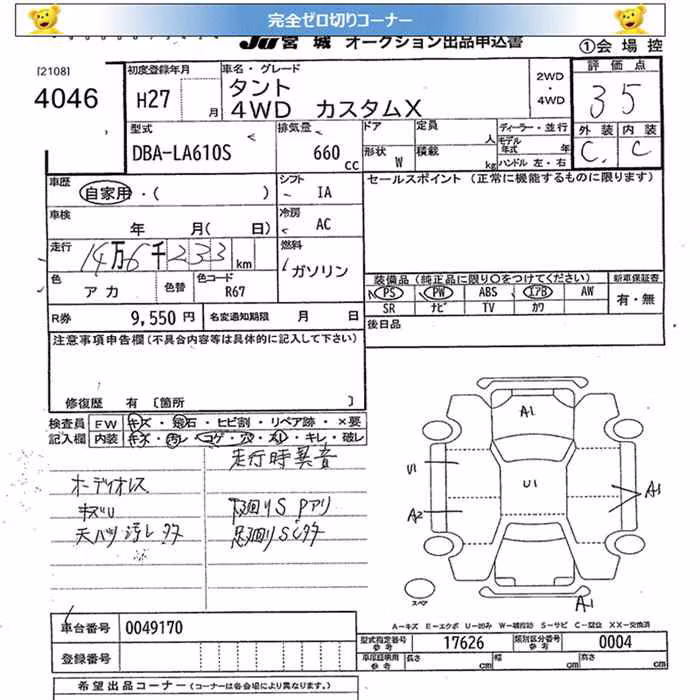 完全ゼロ切りコーナー
JU 宮城 オークション出品申込書
①会場控
[2108]
4046
初度登録年月
H27 月
車名・グレード
タント
4WD カスタムX
2WD
・
4WD
評価点
35
外装 内装
C. C
型式
DBA-LA610S
排気量
660
cc
ドア
形状 W
定員 人
積載 kg
ディーラー・並行
モデル年式 年
ハンドル 左・右
車歴
自家用・( )
シフト
IA
セールスポイント (正常に機能するものに限ります)
車検
年 月( 日)
冷房
AC
走行
14万6千233 km
燃料
ガソリン
色
アカ
色替
色コード
R67
装備品 (純正品に限り○をつけてください)
新車保証書
PS PW ABS IアB AW
SR ナビ TV カワ
有・無
R券 9,550円
名変通知期限 月 日
後日品
注意事項申告欄 (不具合内容等は具体的に記入して下さい)
修復歴 有 [箇所 ]
検査員 FW キズ・飛石・ヒビ割・リペア跡・×要
記入欄 内装 キズ・汚レ・コゲ・穴・スレ・キレ・破レ
走行時異音
オーディオレス
キズU
下廻りS Pアリ
天バリ汚レ タタ
足廻りSC タタ
A1
U1
U1
A2
A1
A1
スペア
A-キズ E-エクボ U-凹み W-補修跡 S-サビ C-腐食 XX-交換済
車台番号 0049170
登録番号
型式指定番号
参考
17626
類別区分番号
参考
0004
車庫証明用
参考
長さ cm
幅 cm
高さ cm
希望出品コーナー (コーナーは各会場により異なります。)